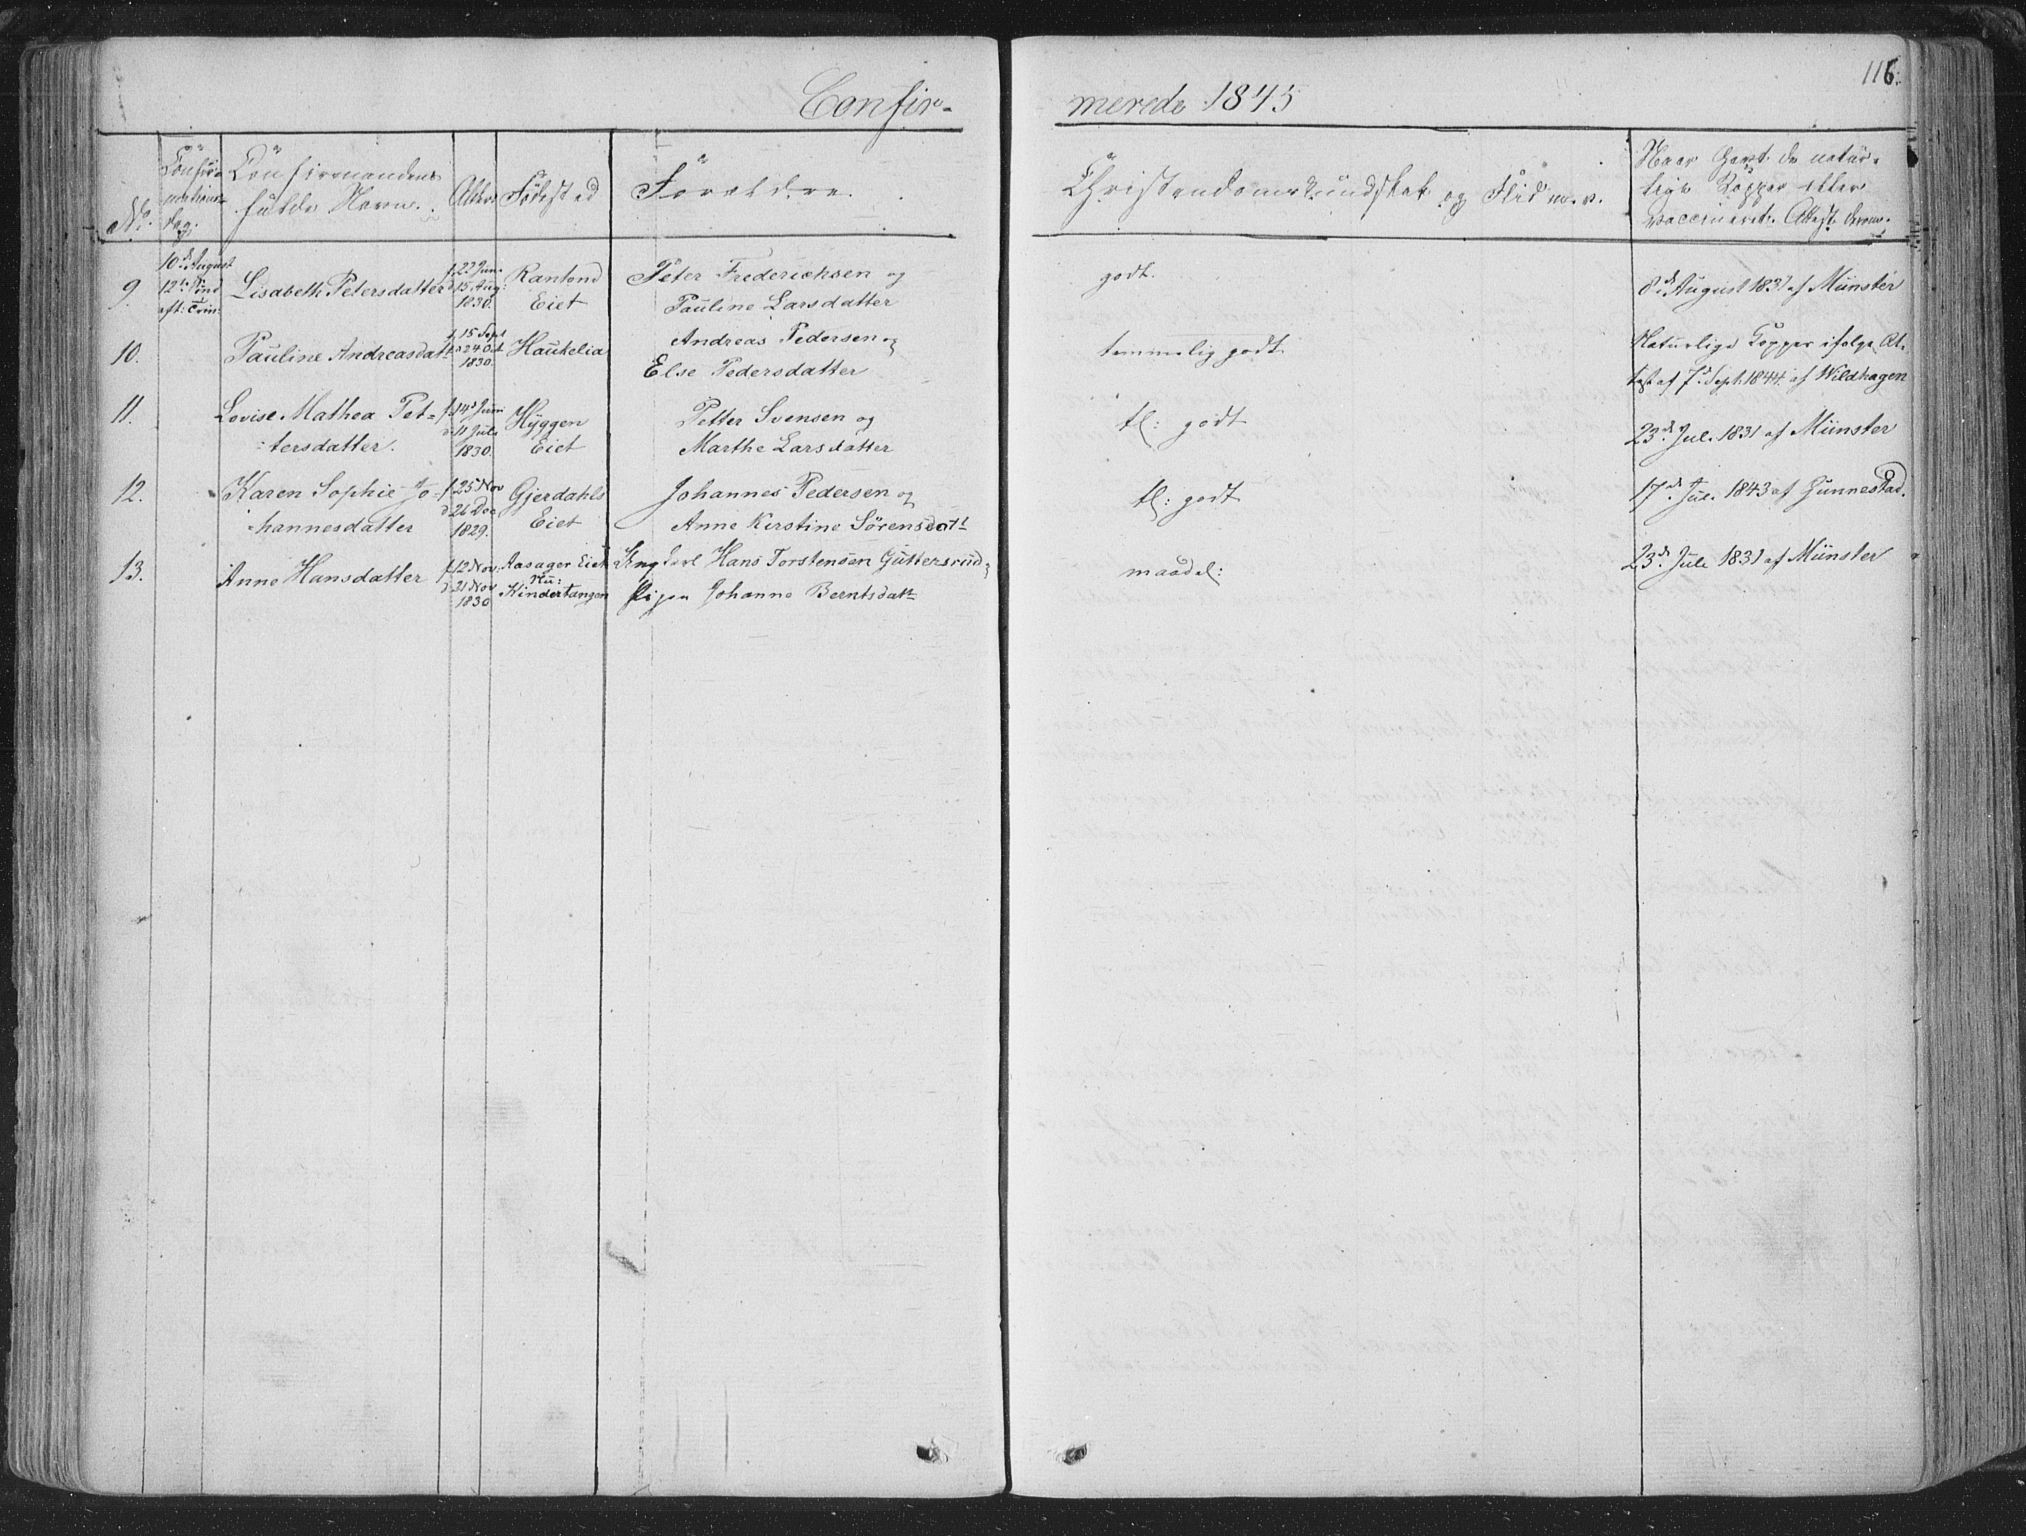 116.
Confir- merede 1845
No.
Confirmations-
dag.
Confirmandens
fulde Navn.
Alder
Fødested
Forældre.
Christendomskundskab og Flid m. v.
Naar havt de natür-
lige Kopper eller
vaccineret. Attest derom.
9.
10de August
12te S. ind
aft: Trin:
Lisabeth Petersdatter
f. 23 Jun.
d. 15 Aug:
1830.
Rantond
Eiet
Peter Frederichsen og
Pauline Larsdatter
godt.
8de August 1831 af Münster
10.
Pauline Andreasdatt.
f. 15 Sept
d. 24 Oct.
1830.
Haukelia
Andreas Pedersen og
Else Pedersdatter
temmelig godt
Naturlige Kopper ifølge At-
test af 7de Sept. 1844 af Wildhagen
11.
Lovise Mathea Pet-
tersdatter.
f. 14de Juni
d. 11 Jule
1830.
Hÿggen
Eiet
Petter Svensen og
Marthe Larsdatter
tl: godt
23de Jul. 1831 af Münster
12.
Karen Sophie Jo-
hannesdatter
f. 25 Nov
d. 26 Dec
1829.
Gjerdahls
Eiet
Johannes Pedersen og
Anne Kirstine Sörensdatt
tl: godt
17de Jul. 1843 af Gunnestad.
13.
Anne Hansdatter
f. 12 Nov.
d. 21 Nov
1830
Aasager Eiet
Nu:
Kindertangen
Ungkarl Hans Torstensen Guttersrud og
Pigen Johanne Berntsdatt
maadel:
23de Jule 1831 af Münster